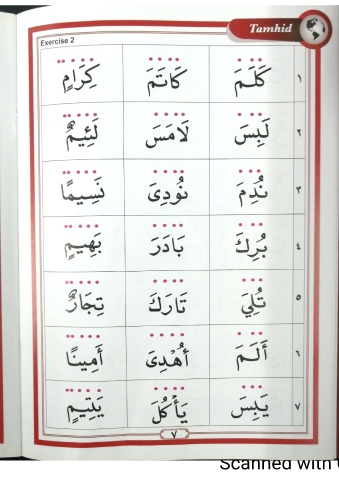 Tamhid
Exercise 2
١ كَلَمَ كَاتَمَ كِرَامٍ
٢ لَبِسَ لَامَسَ لَئِيمٌ
٣ نُدِمَ نُودِىَ نَسِيمًا
٤ بُرِكَ بَادَرَ بَهِيمٍ
٥ تُلِيَ تَارَكَ تِجَارٌ
٦ أَلَمَ أُهْدِىَ أَمِينًا
٧ يَبِسَ يَأْكُلَ يَتِيمٍ
٧
Scanned with